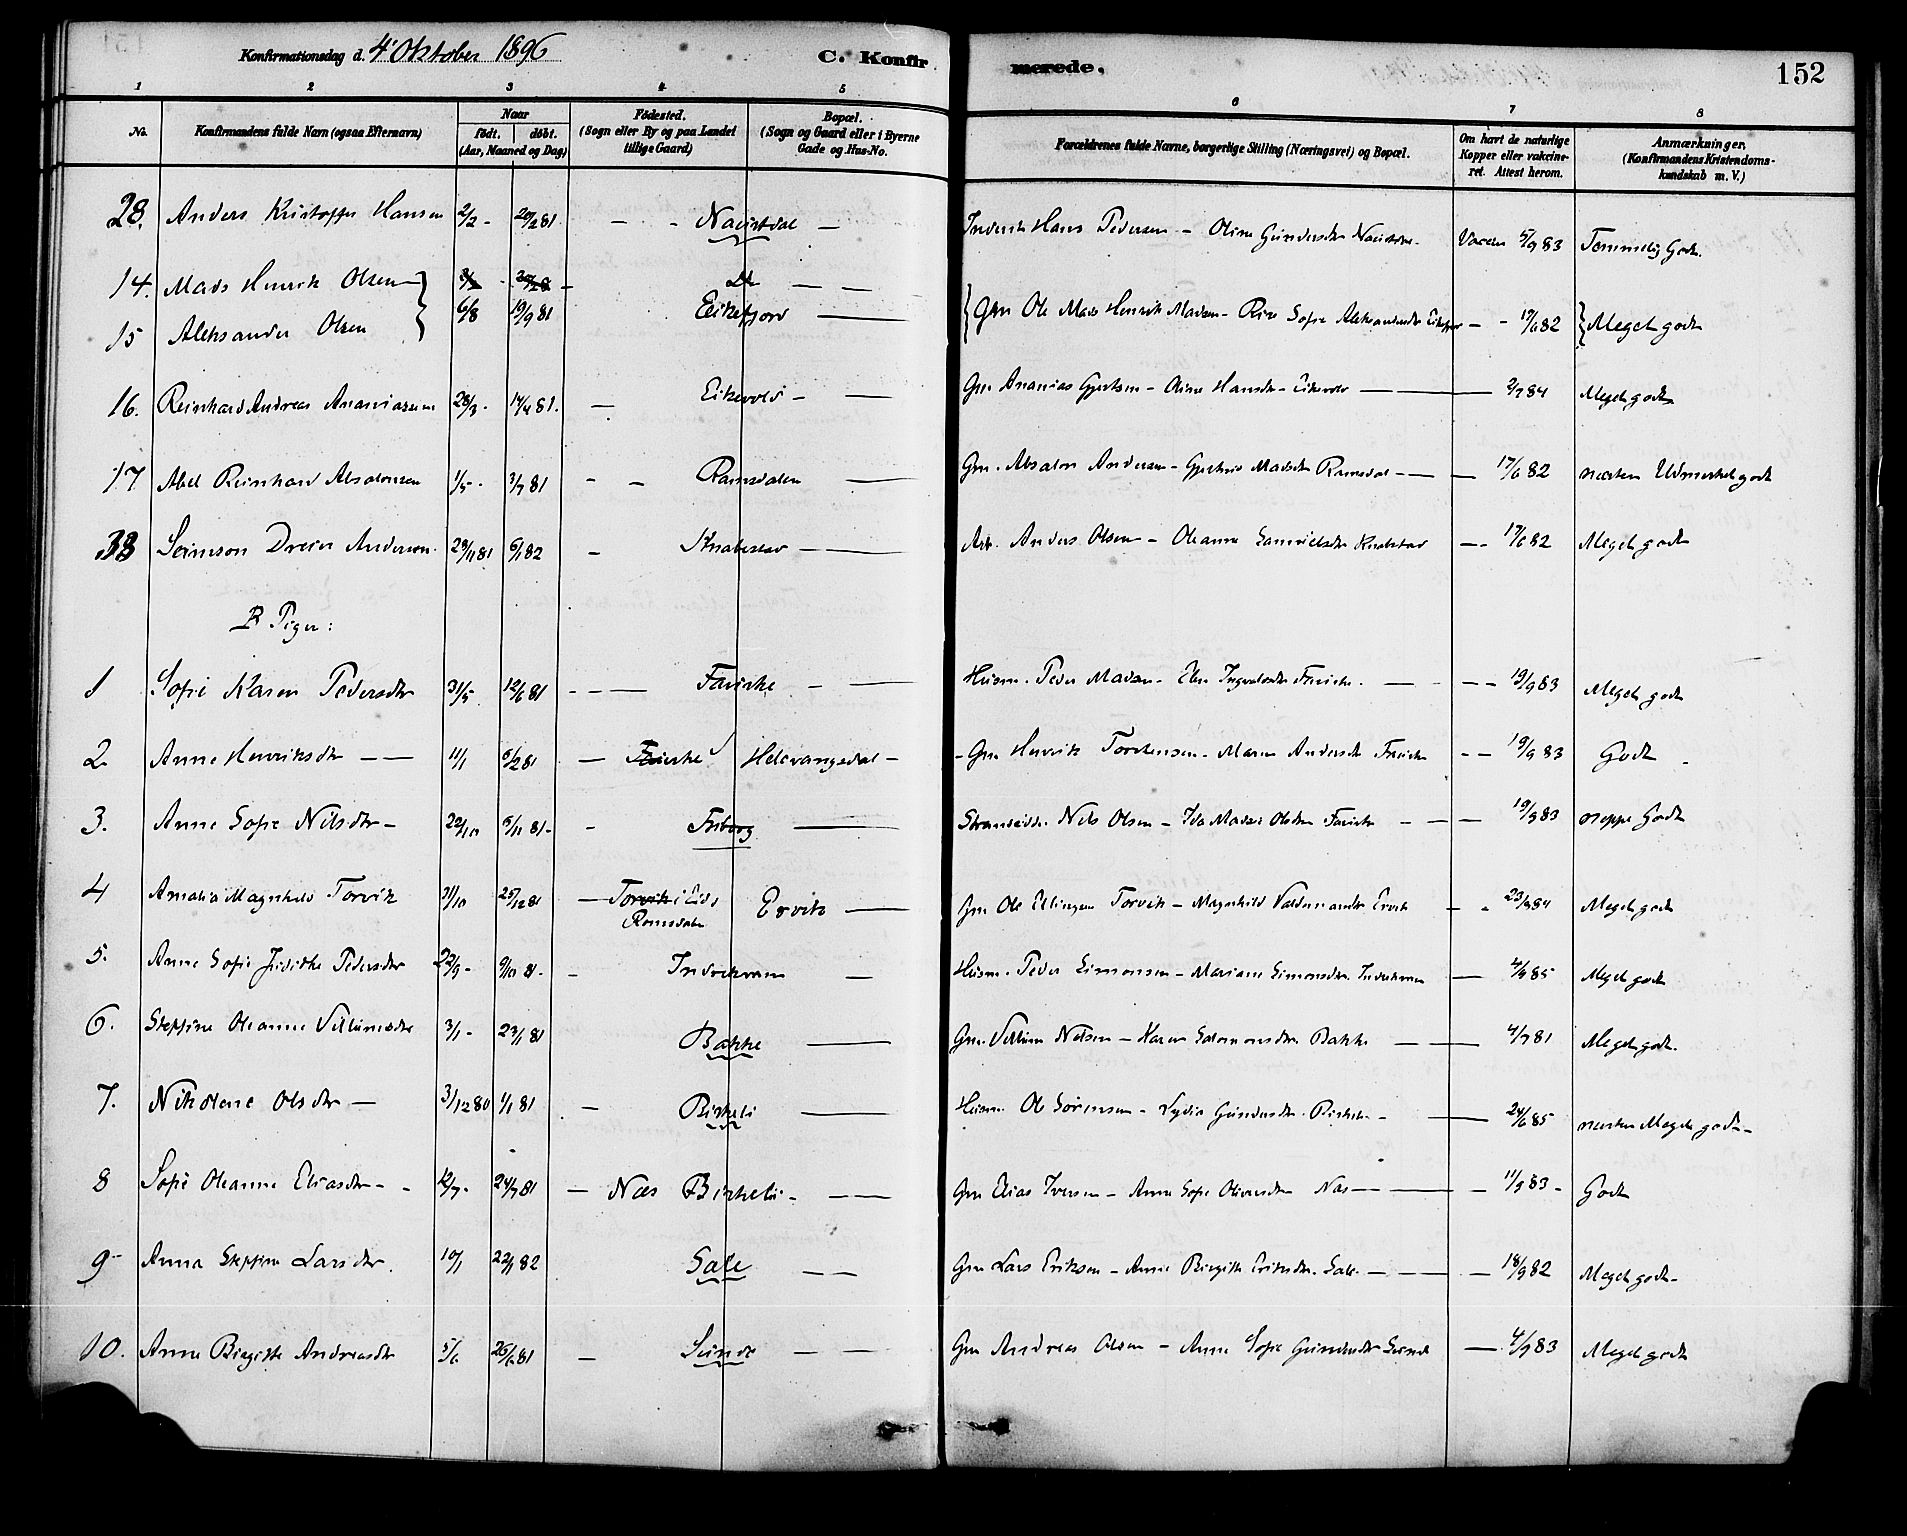 Konfirmationsdag d. 4' Oktober 1896
C. Konfirmerede.
152
1 2 3 4 5 6 7 8
No. Konfirmandens fulde Navn (ogsaa Efternavn) Naar født. døbt. (Aar, Maaned og Dag) Fødested. (Sogn eller By og paa Landet tillige Gaard) Bopæl. (Sogn og Gaard eller i Byerne Gade og Hus-No. Forældrenes fulde Navne, borgerlige Stilling (Næringsvei) og Bopæl. Om havt de naturlige Kopper eller vakcineret. Attest herom. Anmærkninger. (Konfirmandens Kristendomskundskab m. V.)
28. Anders Kristoffer Hansen 2/2 - 20/2 81. - - Naustdal - Hans Pedersen - Oline Gundersdtr 5/9 83 Temmelig Godt.
14. Mads Henrik Olsen
15 Aleksander Olsen 6/8 19/9 81 Eikefjord Gm Ole Mads Henrik Madsen - Sofie Aleksandersdtr 82 Meget godt
16. Reinhard Andreas Ananiassen 28/3 - 14/4 81. - Eikevold - Gm Ananias Gjertsen - Oline Hansdtr - Eikevold 2/7 84 Meget godt
17 Abel Reinhard Absalonsen 1/5 - 3/7 81 - - Ramsdalen Gm. Absalon Andersen - Madsdtr Ramsdal - 17/6 82 næsten Udmerket godt
33 Andersen 28/11 81 6/1 82 - Knabestad - Anders Olsen - Oleanna Samuelsdtr Knabestad 17/6 82 Meget godt
B Piger:
1 Sofie Karen Pedersdtr 31/5 12/6 81 - - - - Husm. Peder Madsen - 19/9 83 Meget godt
2 Anne Henriksdtr - - 11/1 6/2 81 - Helevangsdal - - Gm Henrik Torstensen - Maren Andersdtr - - 19/9 83 Godt
3. Anne Sofie Nilsdtr - 22/10 6/11 81 - - Nils Olsen - Olsdtr - - - 19/9 83 neppe Godt
4 Amalia Magnhild Torvik 31/10 25/12 81 - Torvik i Eids Romsdalen Ervik Gm Ole Ellingsen Torvik - Magnhild Valdemarsdtr Ervik - - 23/9 84 Meget godt
5. Anne Sofie Pedersdtr 22/9 - 9/10 81 - - Indrehvam - Husm. Peder Simonsen - Mariane Simonsdtr Indrehvam 4/9 85 Meget godt
6. Steffine Oleanne Villumsdtr 3/1 - 23/1 81 Bakke Gm. Villum Nilsen - Karen Salomonsdtr Bakke 4/7 81 Meget godt.
7. Nikoline Olsdtr - 3/12 80 1/1 81 - Birkeli Husm. Ole Sørensen - Lydia Gundersdtr Birkeli - 24/6 85 næsten Meget godt -
8 Sofie Oleanne Eliasdtr - - 12/7 - 24/7 81 - Næs Birkeli - - - Gm Elias Iversen - Anne Sofie Oliversdtr Næs - 11/9 83 - Godt
9 - Anna Steffine Larsdtr. 10/1 22/1 82 Sale - - Gm Lars Eriksen - Anne Birgitte Eriksdtr. Sale - 18/9 82 Meget godt -
10. Anne Birgitte Andreasdtr 5/6 26/6 81 - Sunde - - Gm Andreas Olsen - Anne Sofie Gundersdtr Sunde 4/9 83 Meget godt